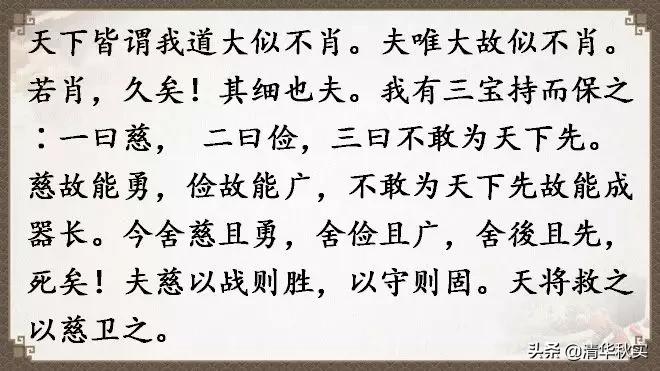 天下皆谓我道大似不肖。夫唯大故似不肖。
若肖，久矣！其细也夫。我有三宝持而保之
：一曰慈， 二曰俭，三曰不敢为天下先。
慈故能勇，俭故能广，不敢为天下先故能成
器长。今舍慈且勇，舍俭且广，舍後且先，
死矣！夫慈以战则胜，以守则固。天将救之
以慈卫之。
头条 @清华秋实